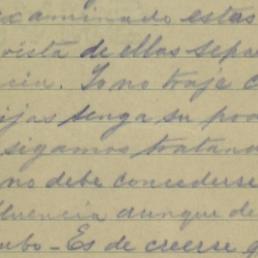 examinado estas
vista de ellas sepa
cia. Yo no traje c
ijas tenga su pod
sigamos tratand
no debe concederse
fluencia aunque de
ubo - Es de creerse q